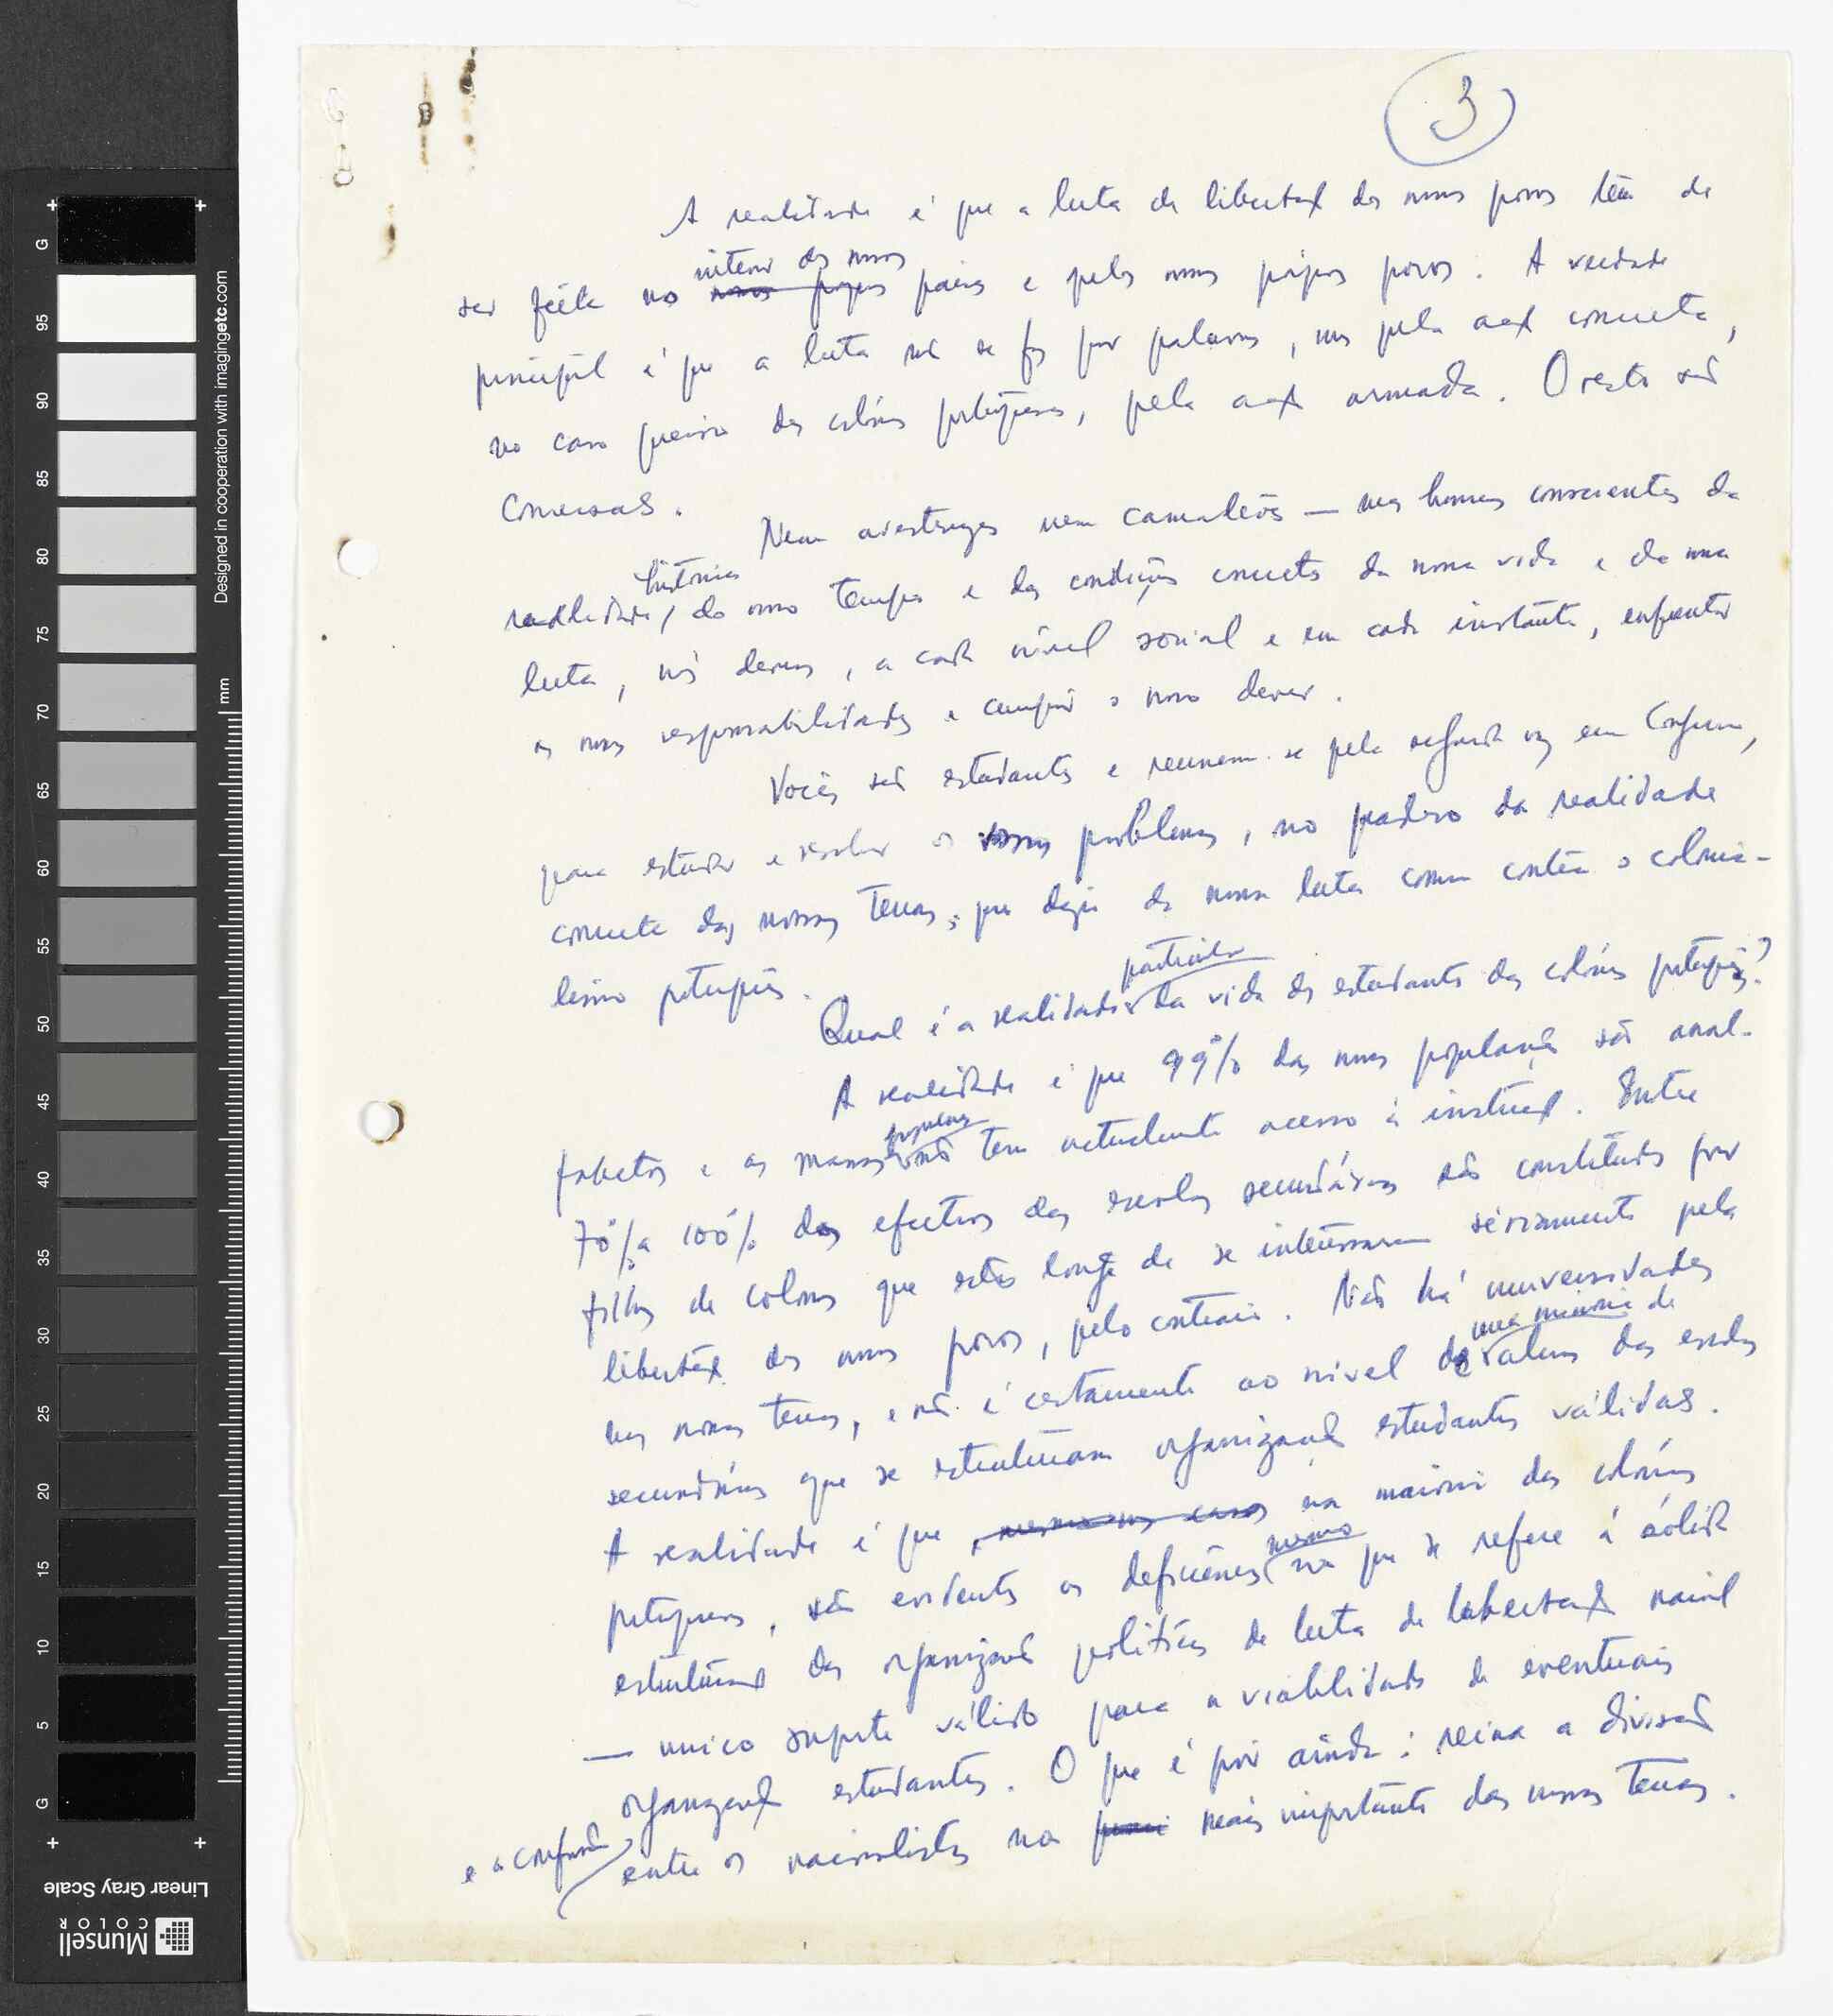 3
A realidade é que a luta de libertação dos nossos povos têm de
interior dos nossos
ser feita no nossos próprios países e pelos nossos próprios povos. A verdade
principal é que a luta não se faz por palavras, mas pela acção concreta,
no caso preciso das colónias portuguesas, pela acção armada. O resto são
conversas.
Nem avestruzes nem camaleões — mas homens conscientes da
histórica
realidade, do nosso tempo e das condições concretas da nossa vida e da nossa
luta, nós devemos, a cada nível social e em cada instante, enfrentar
as nossas responsabilidades e cumprir o nosso dever.
Vocês são estudantes e reunem-se pela segunda vez em Congresso,
para estudar e resolver os vossos problemas, no quadro da realidade
concreta das nossas terras, quer dizer da nossa luta comum contra o colonia-
lismo português.
particular
Qual é a realidade da vida dos estudantes das colónias portuguesas?
A realidade é que 99% das nossas populações são anal-
populares
fabetos e as massas não tem actualmente acesso à instrução. Entre
70% a 100% dos efectivos das escolas secundárias são constituídos por
filhos de colonos que estão longe de se interessarem sériamente pela
libertação dos nossos povos, pelo contrário. Não há universidades
nas nossas terras, e não é certamente ao nível de
uma minoria de
alunos das escolas
secundárias que se estruturam organizações estudantis válidas.
A realidade é que, mesmo nos casos na maioria das colónias
mesmo
portuguesas, são evidentes as deficiências no que se refere à sólida
estruturação das organizações políticas de luta de libertação nacional
— unico suporte válido para a viabilidade de eventuais
organizações estudantis. O que é pior ainda: reina a divisão
e a confusão
entre os nacionalistas na mais importante das nossas terras.
Designed in cooperation with imagingetc.com
mm
G
95
90
85
80
75
70
65
60
55
50
45
40
35
30
25
20
15
10
5
G
Linear Gray Scale
Munsell
COLOR